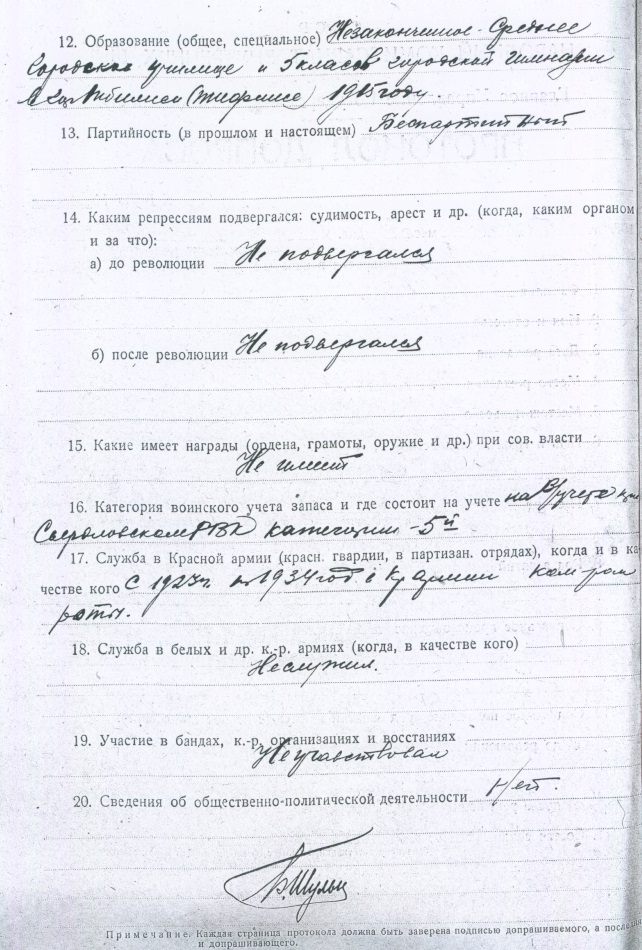 12. Образование (общее, специальное) Незаконченное-Среднее
Городское училище и 5 класов городской гимназии
в Тбилиси (Тифлисе) 1915 году.
13. Партийность (в прошлом и настоящем) Беспартийный
14. Каким репрессиям подвергался: судимость, арест и др. (когда, каким органом
и за что):
а) до революции Не подвергался
б) после революции Не подвергался
15. Какие имеет награды (ордена, грамоты, оружие и др.) при сов. власти
Не имеет
16. Категория воинского учета запаса и где состоит на учете на в/учете при
Свердловском РВК категории -5й
17. Служба в Красной армии (красн. гвардии, в партизан. отрядах), когда и в ка-
честве кого С 1923г. по 1934 год в Кр армии ком-ром
роты.
18. Служба в белых и др. к.-р. армиях (когда, в качестве кого)
Не служил.
19. Участие в бандах, к.-р. организациях и восстаниях
Не участвовал
20. Сведения об общественно-политической деятельности Нет.
Шульц
Примечание. Каждая страница протокола должна быть заверена подписью допрашиваемого, а последняя
и допрашивающего.